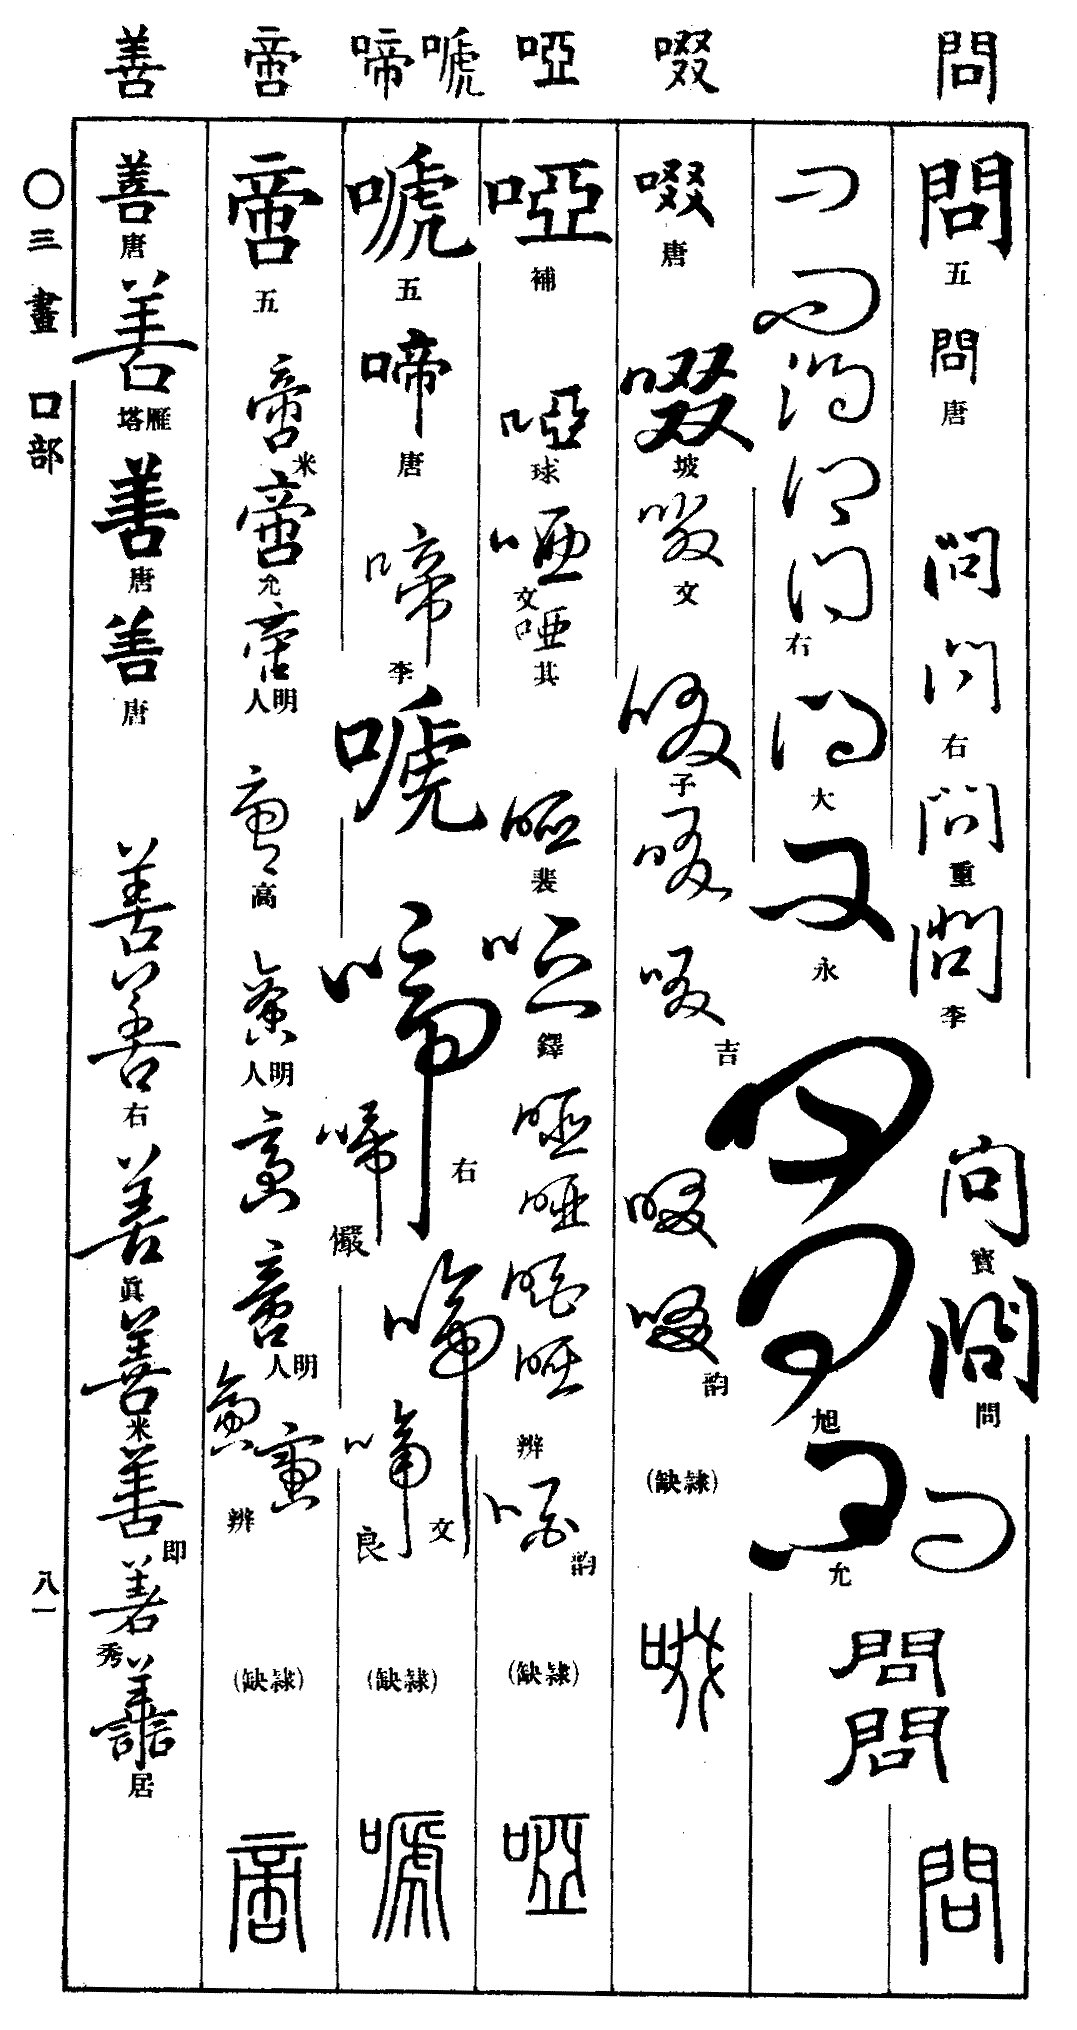 問
啜
啞
嗁啼
啻
善
問
五
問
唐
問
問
右
問
重
問
李
問
寶
問
問
問
問
問
問
問
問
右
問
大
問
永
問
問
旭
問
允
問
問
啜
唐
啜
坡
啜
文
啜
子
啜
啜
吉
啜
啜
韵
(缺隷)
啜
啞
補
啞
球
啞
文
啞
其
啞
裴
啞
鐸
啞
啞
啞
啞
辨
啞
韵
(缺隷)
啞
嗁
五
啼
唐
啼
李
嗁
啼
右
啼
儼
啼
文
啼
良
(缺隷)
嗁
啻
五
啻
米
啻
允
啻
人明
啻
高
啻
人明
啻
啻
人明
啻
啻
辨
(缺隷)
啻
善
唐
善
塔雁
善
唐
善
唐
善
善
右
善
眞
善
米
善
即
善
秀
譱
居
〇三畫 口部
八一